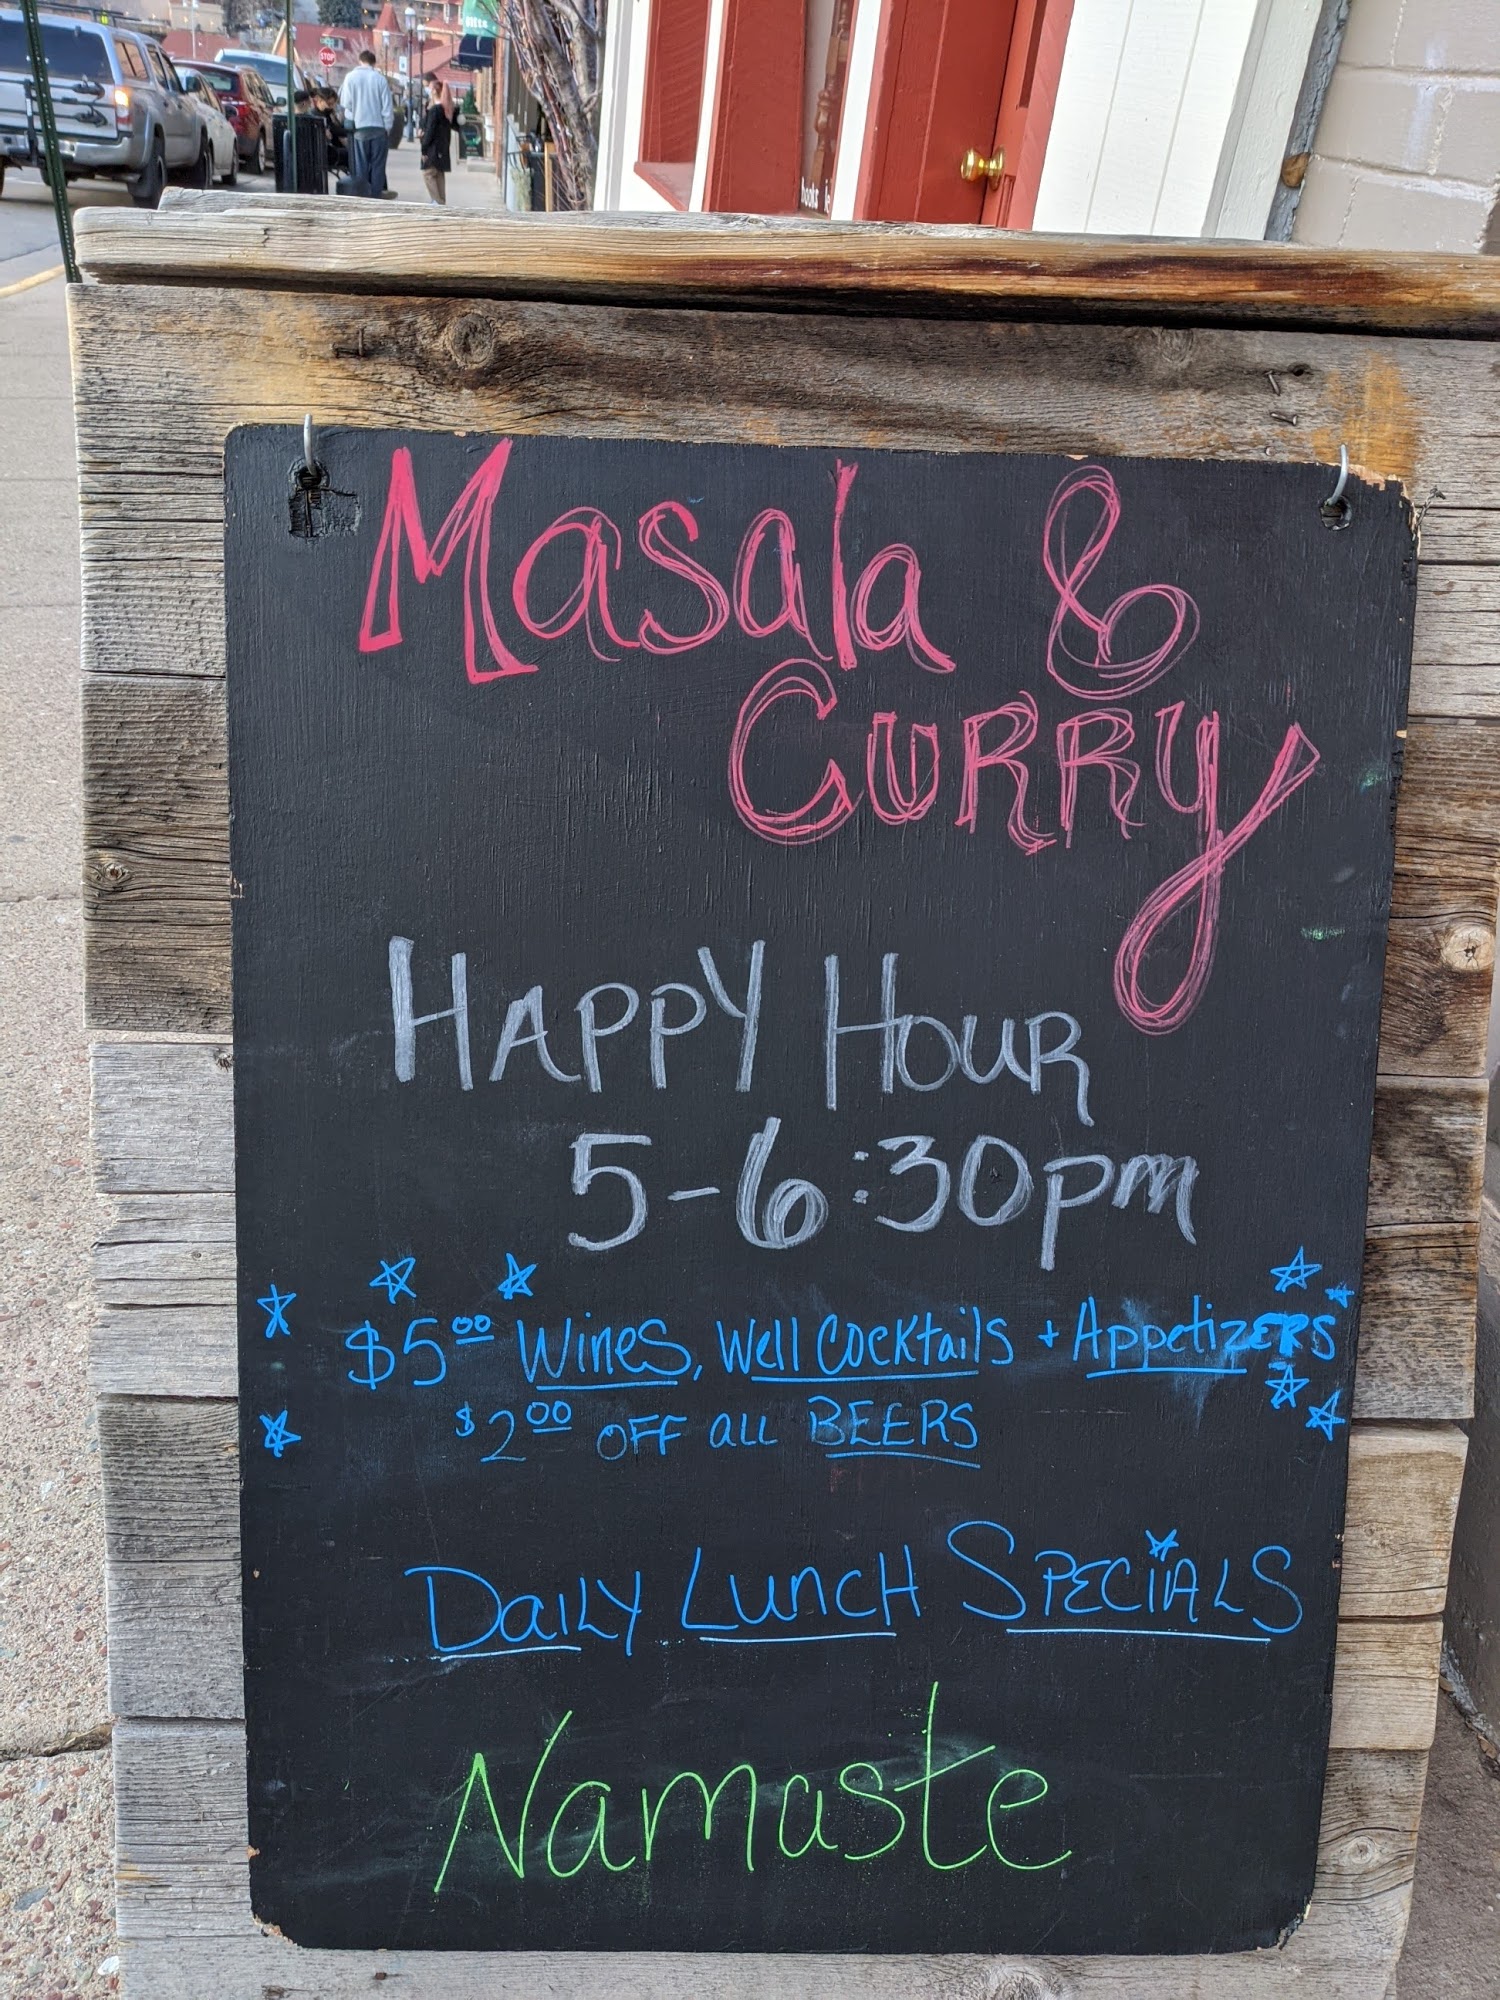 STOP
Masala &
CURRY
HAPPY HOUR
5-6:30pm
$5.00 Wines, Well Cocktails + AppetizERS
$2.00 OFF all BEERS
DaiLY LUNCH SPECiALS
Namaste